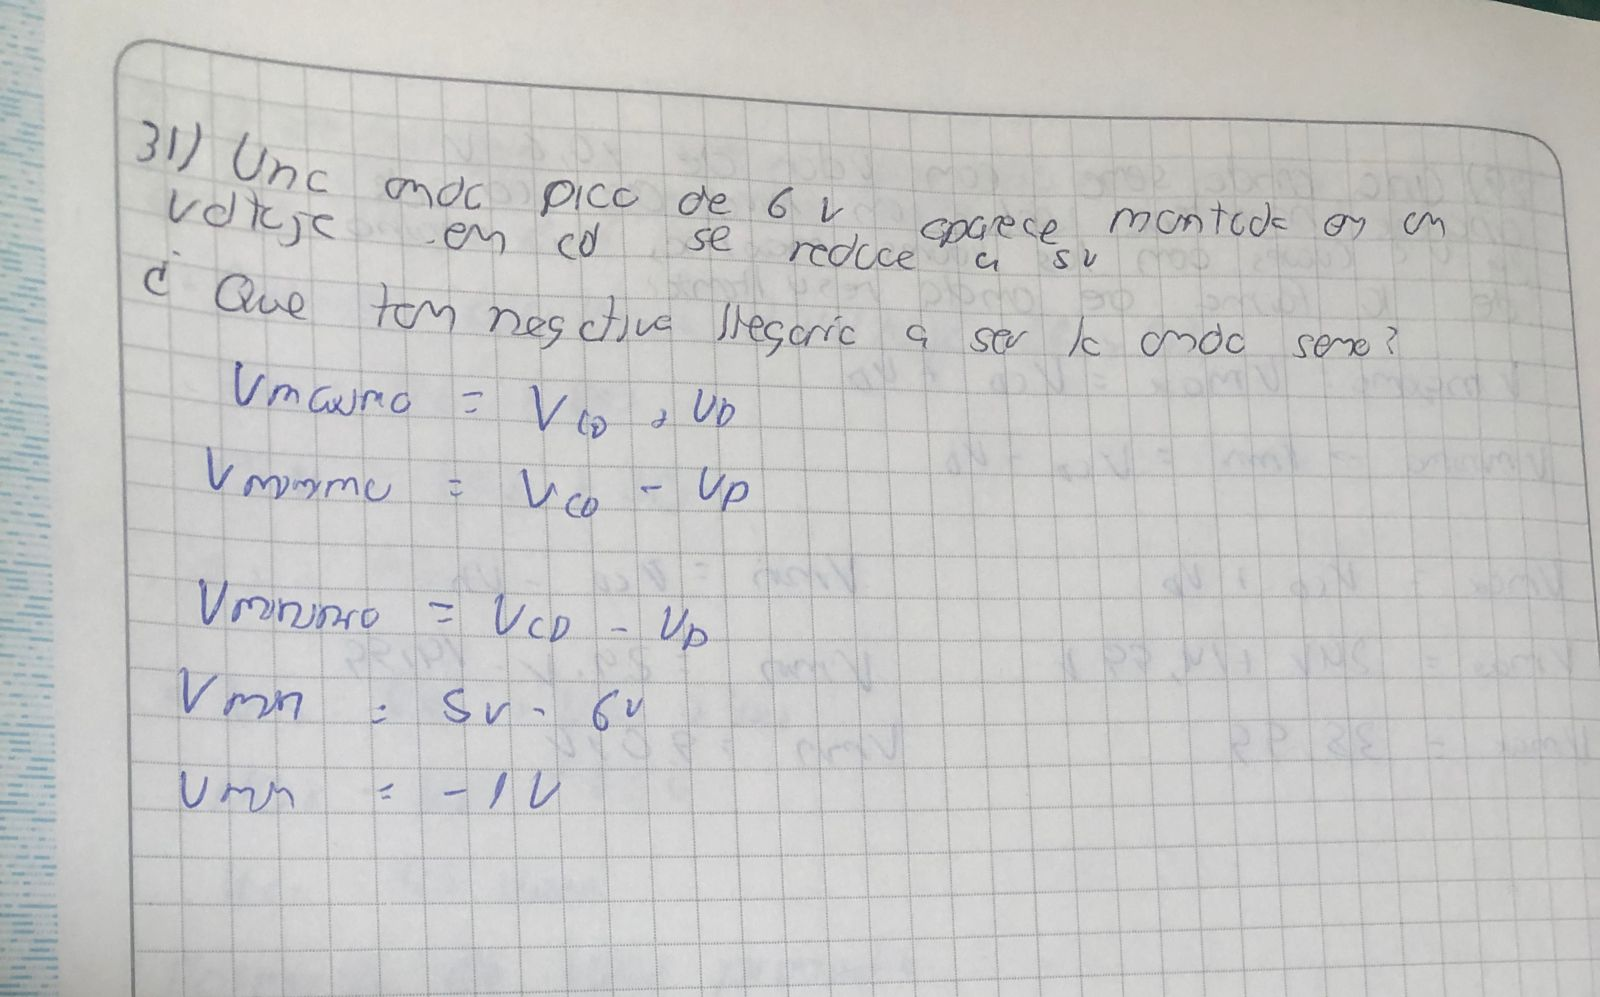 31) Una onda pico de 6 v aparece montada en un
voltaje en cd se reduce a 5v
¿ Que tan negativa llegaria a ser la onda seno?
Vmaximo = VCD + VP
Vminimo = VCD - VP
Vminimo = VCD - VP
Vmin = 5v - 6v
Vmin = -1V